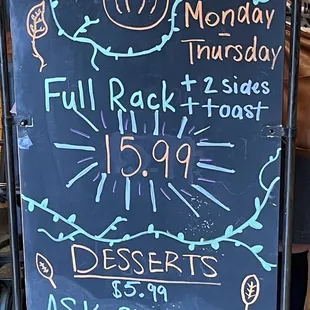 Monday
-
Thursday
Full Rack + 2 sides
+ toast
15.99
DESSERTS
$5.99
ASK